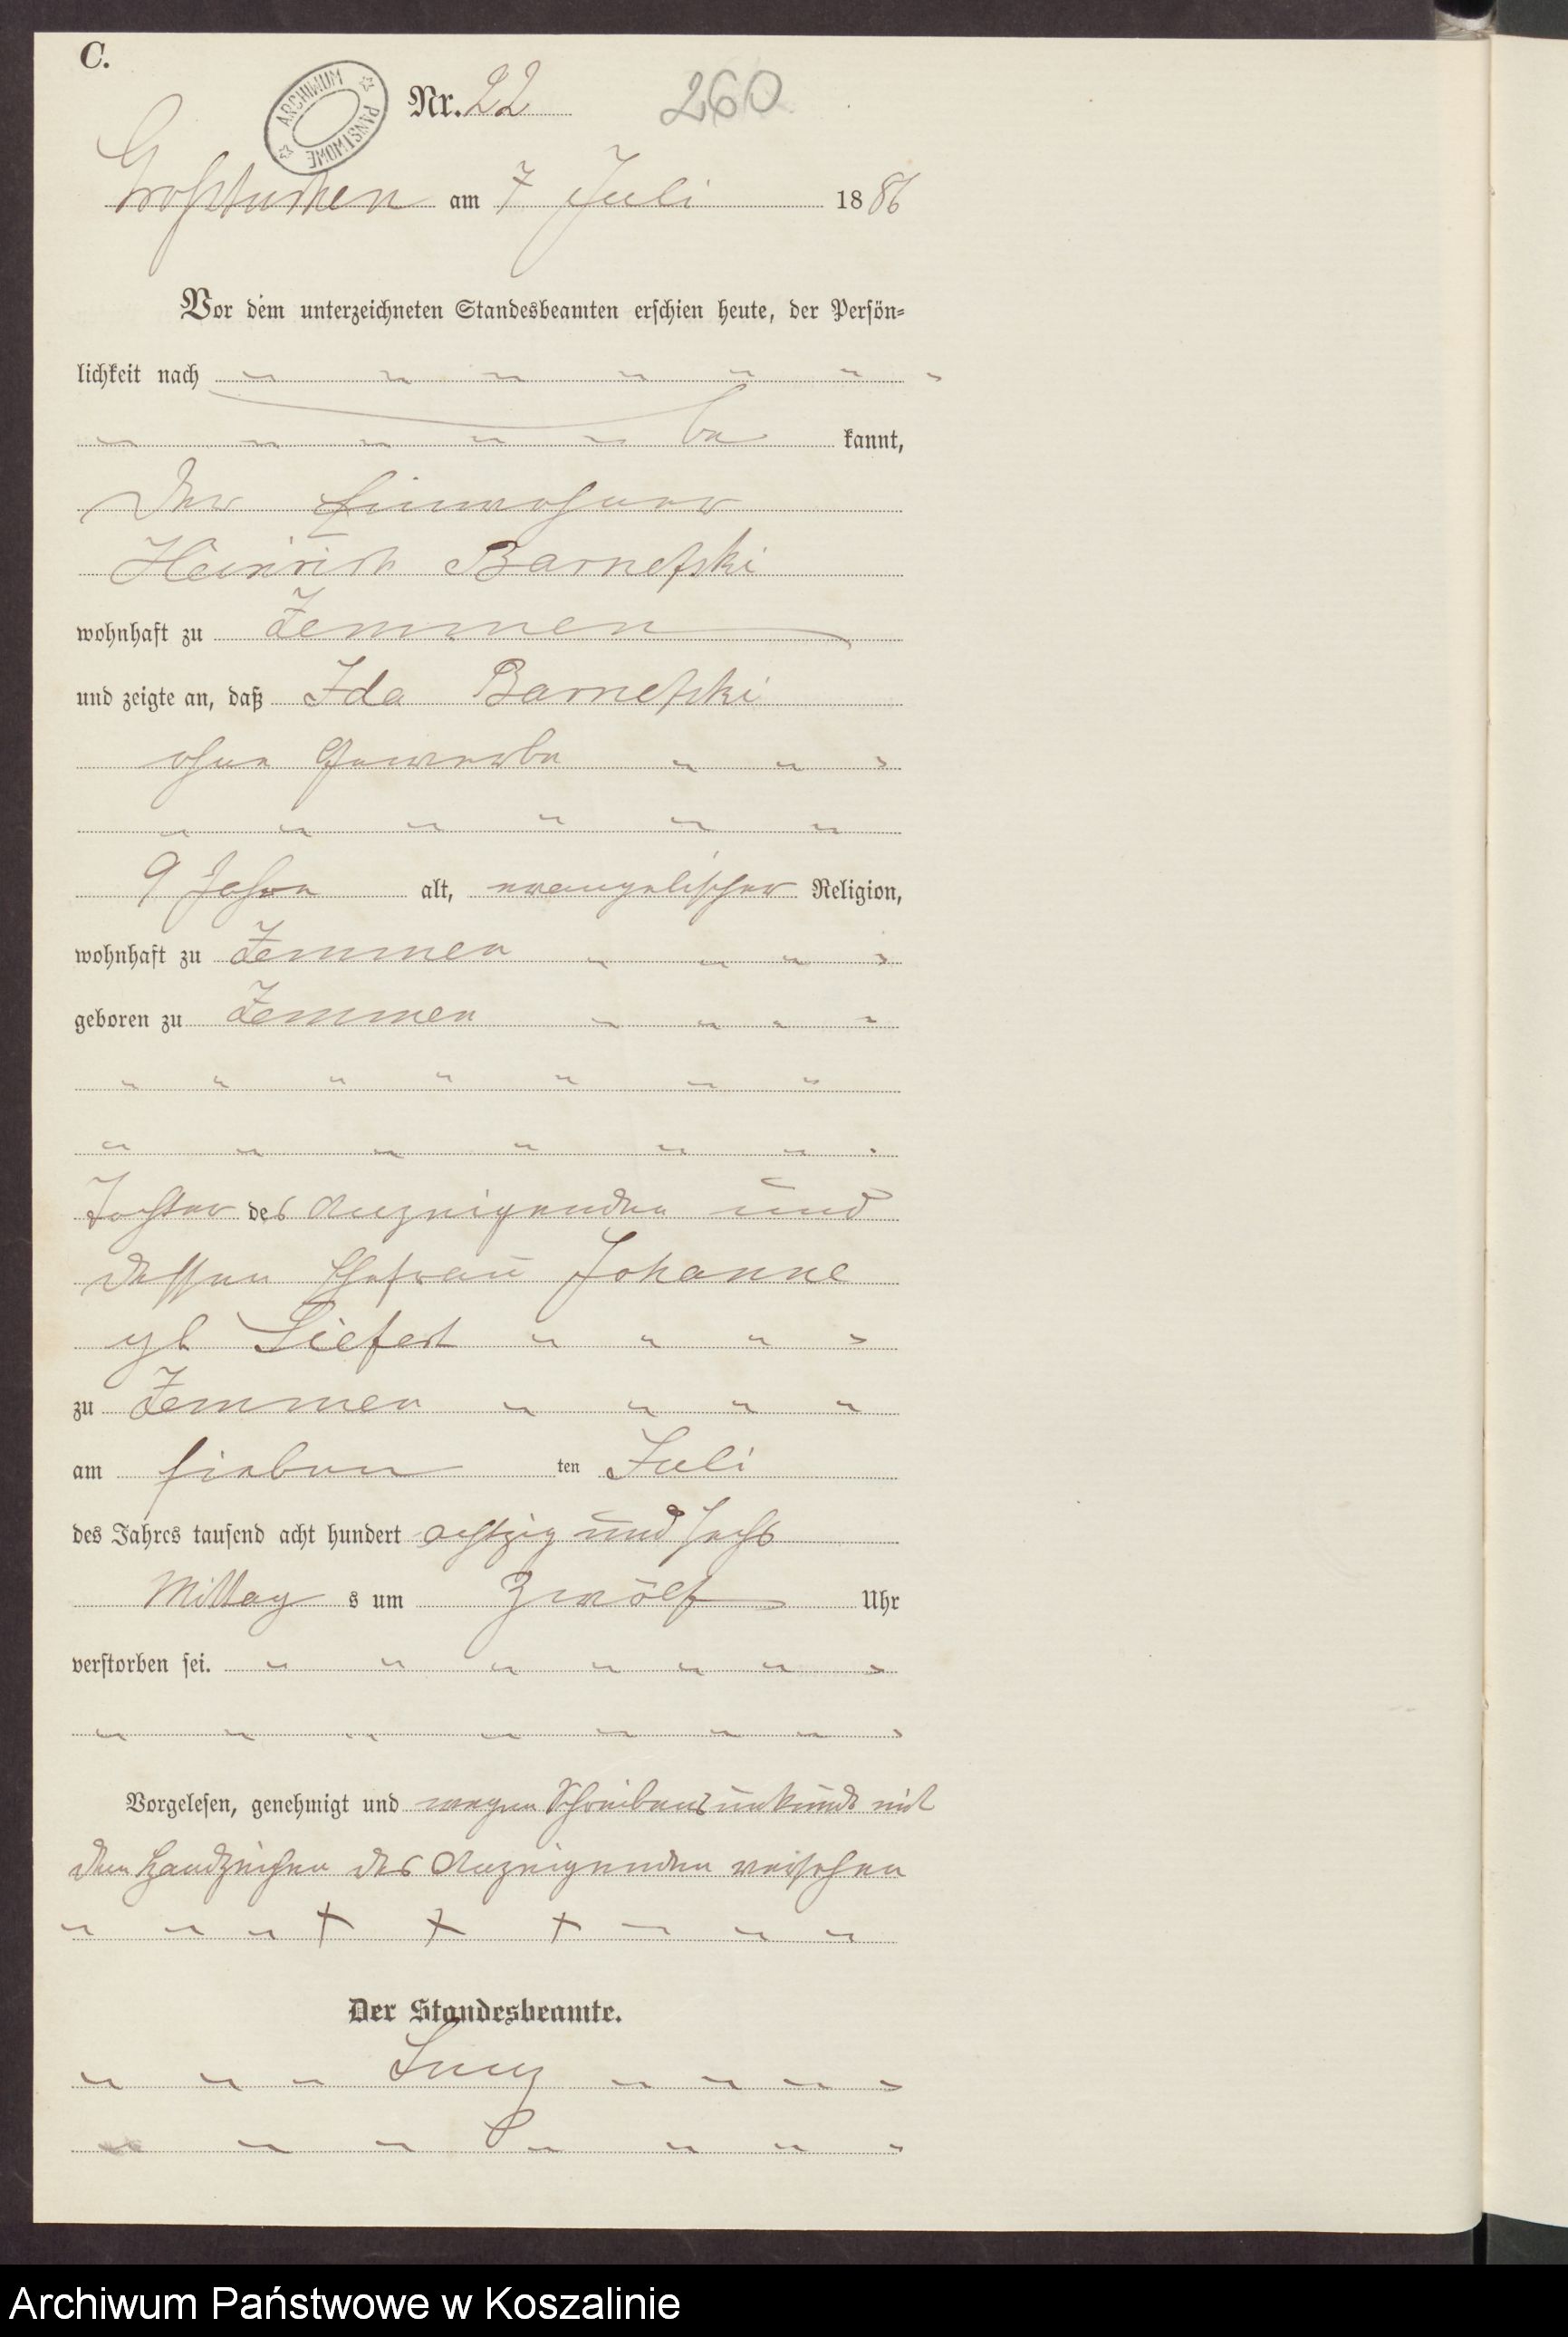 C.
ARCHIWUM PAŃSTWOWE
Nr. 22 260
Großtuchen am 7 Juli 1886
Vor dem unterzeichneten Standesbeamten erschien heute, der Persön-
lichkeit nach
be kannt,
der Einwohner
Heinrich Barnetzki
wohnhaft zu Zemmen
und zeigte an, daß Ida Barnetzki
ohne Gewerbe
9 Jahre alt, evangelischer Religion,
wohnhaft zu Zemmen
geboren zu Zemmen
Tochter des Anzeigenden und
dessen Ehefrau Johanne
geb Siefert
zu Zemmen
am sieben ten Juli
des Jahres tausend acht hundert achtzig und sechs
Mittag s um zwölf Uhr
verstorben sei.
Vorgelesen, genehmigt und wegen Schreibensunkunde mit
dem Handzeichen des Anzeigenden versehen
+ + +
Der Standesbeamte.
Archiwum Państwowe w Koszalinie